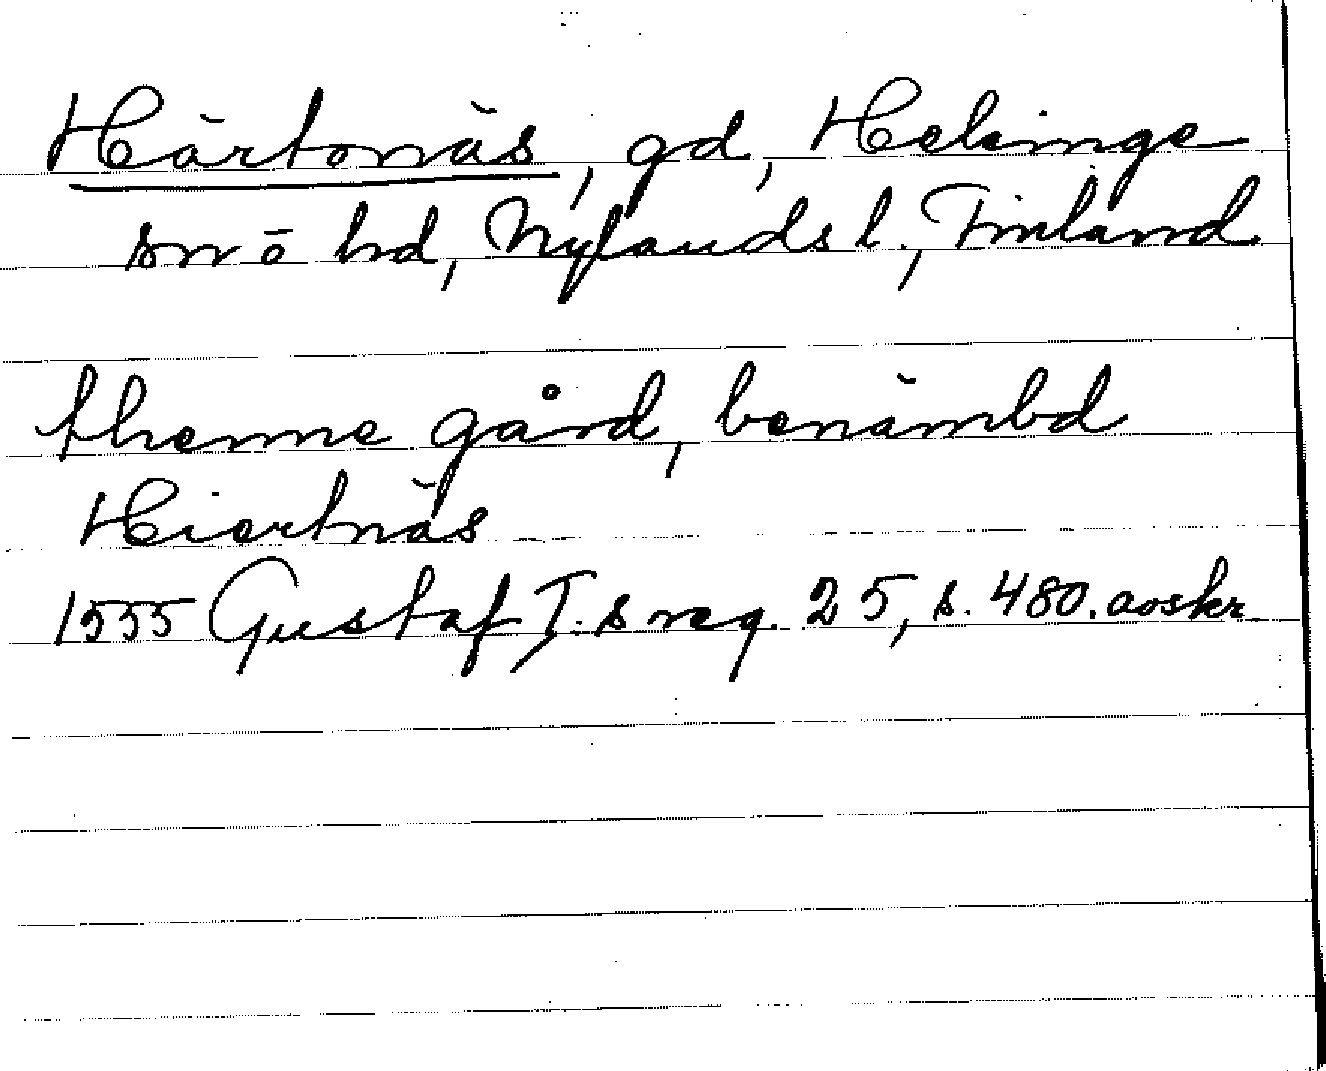 Härtonäs, gd, Helsinge
sn o hd, Nylands l., Finland
thenne gård, benämbd
Hiertnäs
1555 Gustaf I:s reg. 25, s. 480. avskr.